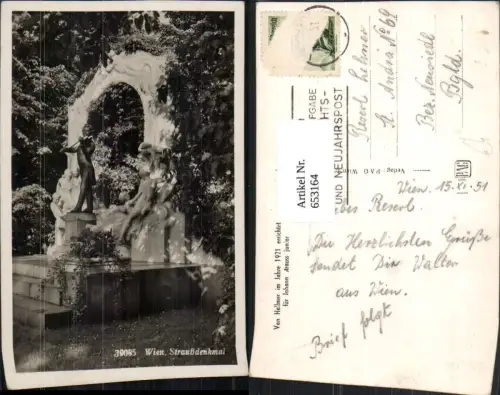 39085 Wien, Straußdenkmal
Von Hellmer im Jahre 1921 errichtet
für Johann Strauss junior
Artikel Nr.
653164
FGABE
HTS-
UND NEUJAHRSPOST
Verlag: PAG Wien
PAG
Reserl Lehner
St. Andrä No 69
Bez. Neusiedl
Bgld.
Wien, 15.XI.51
Liebes Reserl.
Die Herzlichsten Grüße
sendet Dir Walter
aus Wien.
Brief folgt